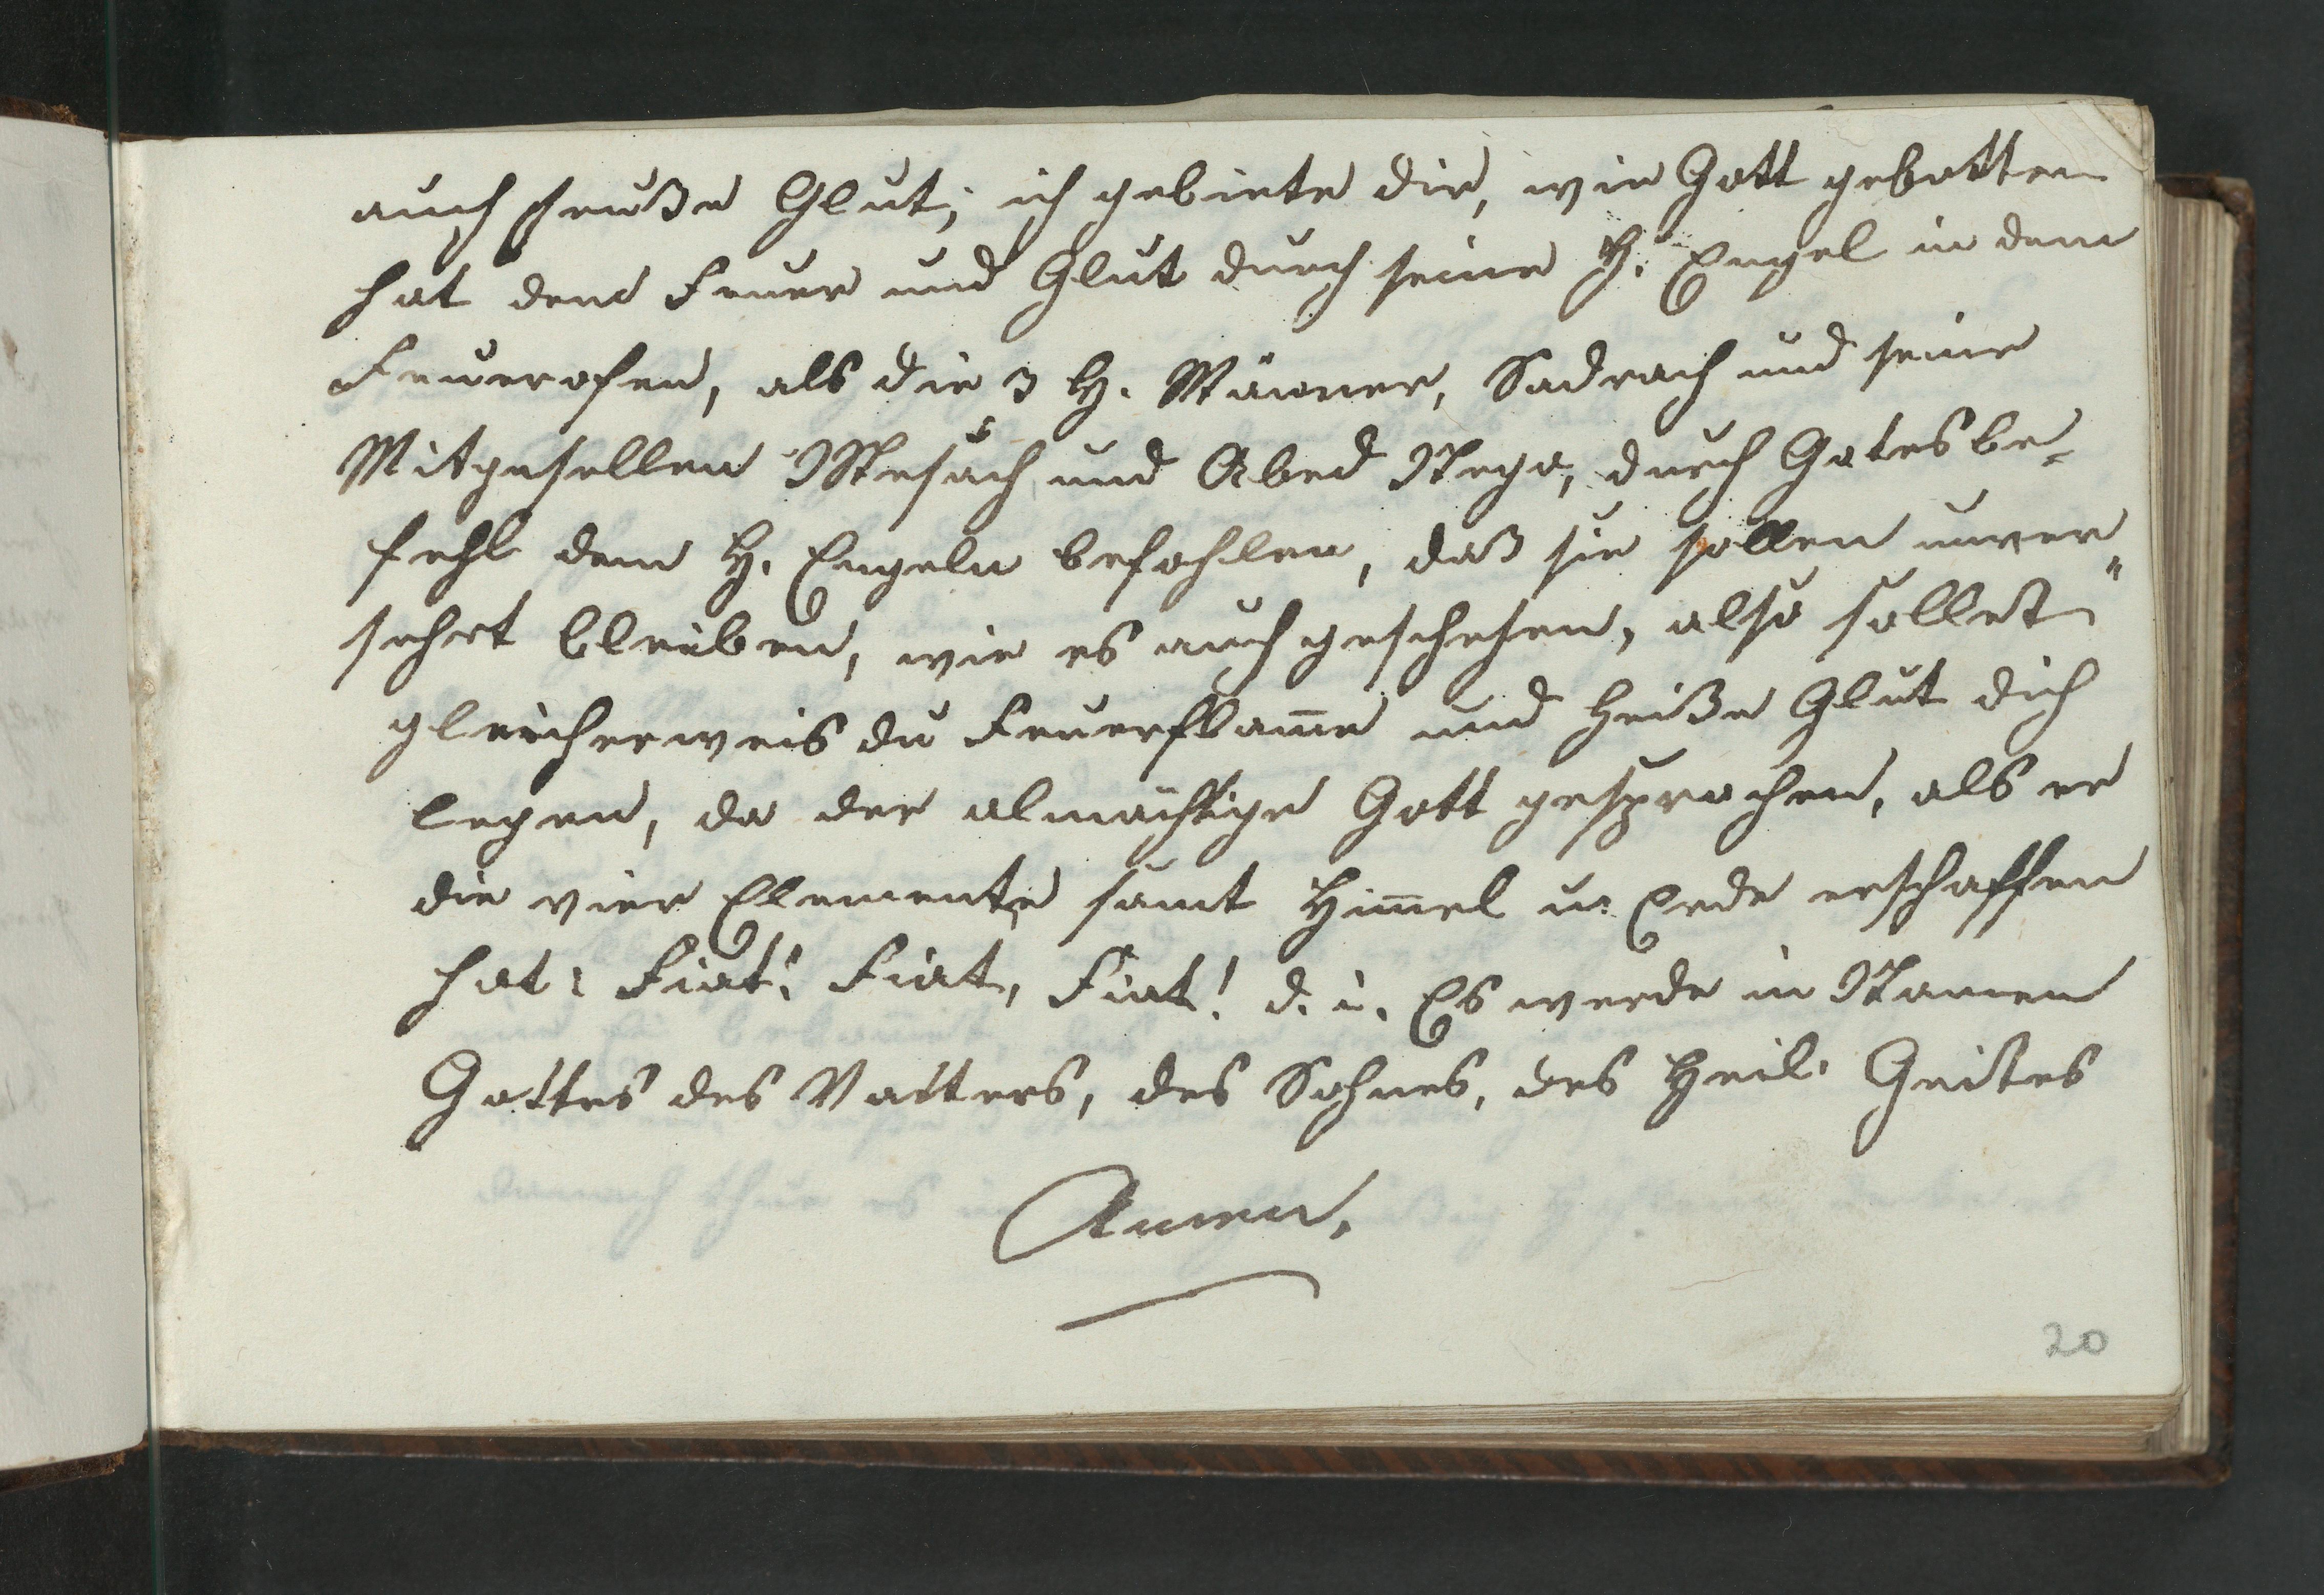 auch heiße Glut; ich gebiete dir, wie Gott gebotten
hat dem Feuer und Glut durch seine H. Engel in dem
Feuerofen, als die 3 H. Männer, Sadrach und seine
Mitgesellen Mesach und Abed Nego, durch Gotes be-
fehl dem H. Engeln befohlen, daß sie sollen unver"
sehrt bleiben, wie es auch geschehen, also sollest
gleicherweis du Feuerflam̅e und heiße Glut dich
legen, da der almächtige Gott gesprochen, als er
die vier Elemente samt Him̅el u: Erde erschaffen
hat: Fiat! Fiat, Fiat! d. i. Es werde in Namen
Gottes des Vatters, des Sohnes, des Heil. Geistes
Amen.
20